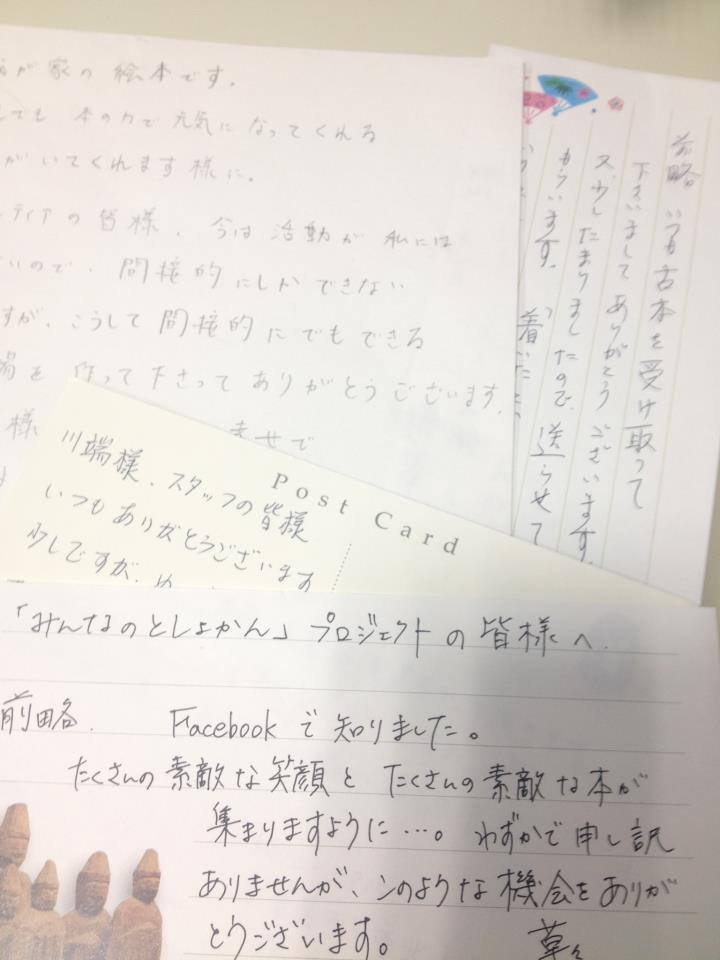 が家の絵本です。
でも本の力で元気になってくれる
がいてくれます様に。
ティアの皆様、今は活動が私には
いので、間接的にしかできない
すが、こうして間接的にでもできる
場を作って下さってありがとうございます。
様
幸せで
前略 いつも古本を受け取って
下さいましてありがとうございます。
又、少したまりましたので、送らせて
もらいます。
着
Post Card
川端様、スタッフの皆様
いつもありがとうございます
少しですが、
「みんなのとしょかん」プロジェクトの皆様へ.
前略. Facebookで知りました。
たくさんの素敵な笑顔とたくさんの素敵な本が
集まりますように…。わずかで申し訳
ありませんが、このような機会をありが
とうございます。 草々